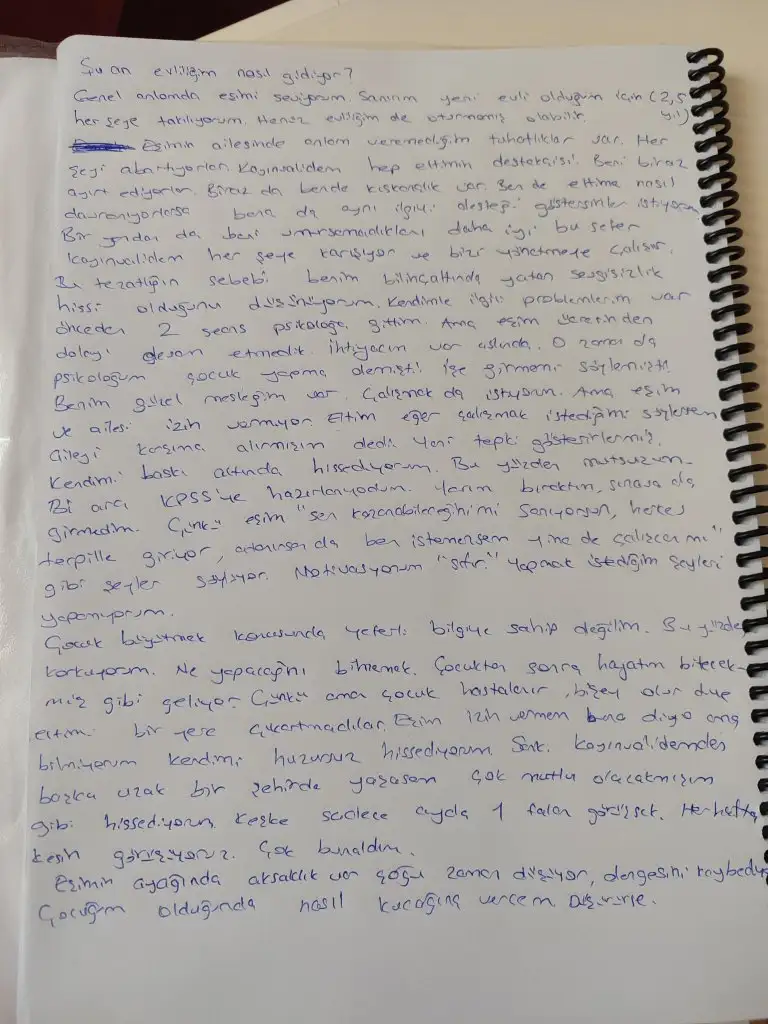 Şu an evliliğim nasıl gidiyor?
Genel anlamda eşimi seviyorum. Sanırım yeni evli olduğum için (2,5 yıl)
her şeye takılıyorum. Henüz evliliğim de oturmamış olabilir.
Eşimin ailesinde anlam veremediğim tuhaflıklar var. Her
şeyi abartıyorlar. Kayınvalidem hep eltimin destekçisi. Beni biraz
ayırt ediyorlar. Biraz da bende kıskançlık var. Ben de eltime nasıl
davranıyorlarsa bana da aynı ilgiyi desteği göstersinler istiyorum
Bir yandan da beni umursamadıkları daha iyi bu sefer
kayınvalidem her şeye karışıyor ve bizi yönetmeye çalışır.
Bu tezatlığın sebebi benim bilinçaltında yatan sevgisizlik
hissi olduğunu düşünüyorum. Kendimle ilgili problemlerim var
önceden 2 seans psikoloğa gittim. Ama eşim ücretinden
dolayı devam etmedik. İhtiyacım var aslında. O zaman da
psikoloğum çocuk yapma demişti işe girmemi söylemişti.
Benim güzel mesleğim var. Çalışmak da istiyorum. Ama eşim
ve ailesi izin vermiyor. Eltim eğer çalışmak istediğimi söylersem
aileyi karşıma alırmışım dedi. Yani tepki gösterirlermiş.
Kendimi baskı altında hissediyorum. Bu yüzden mutsuzum.
Bi ara KPSS'ye hazırlanıyodum. Yarım bıraktım, sınava da
girmedim. Çünkü eşim "sen kazanabileceğini mi sanıyorsun, herkes
torpille giriyor, atanırsan da ben istemezsem yine de çalışcan mı"
gibi şeyler söylüyor. Motivasyonum "sıfır." Yapmak istediğim şeyleri
yapamıyorum.
Çocuk büyütmek konusunda yeterli bilgiye sahip değilim. Bu yüzden
korkuyorum. Ne yapacağını bilmemek. Çocuktan sonra hayatım bitecek-
miş gibi geliyor. Çünkü ama çocuk hastalanır, bişey olur diye
eltimi bir yere çıkartmadılar. Eşim izin vermem buna diyo ama
bilmiyorum kendimi huzursuz hissediyorum. Sanki kayınvalidemden
başka uzak bir şehirde yaşasam çok mutlu olacakmışım
gibi hissediyorum. Keşke sadece ayda 1 falan görüşsek. Her hafta
kesin görüşüyoruz. Çok bunaldım.
Eşimin ayağında aksaklık var çoğu zaman düşüyor, dengesini kaybediyo
Çocuğum olduğunda nasıl kucağına vercem. Düşürürse.